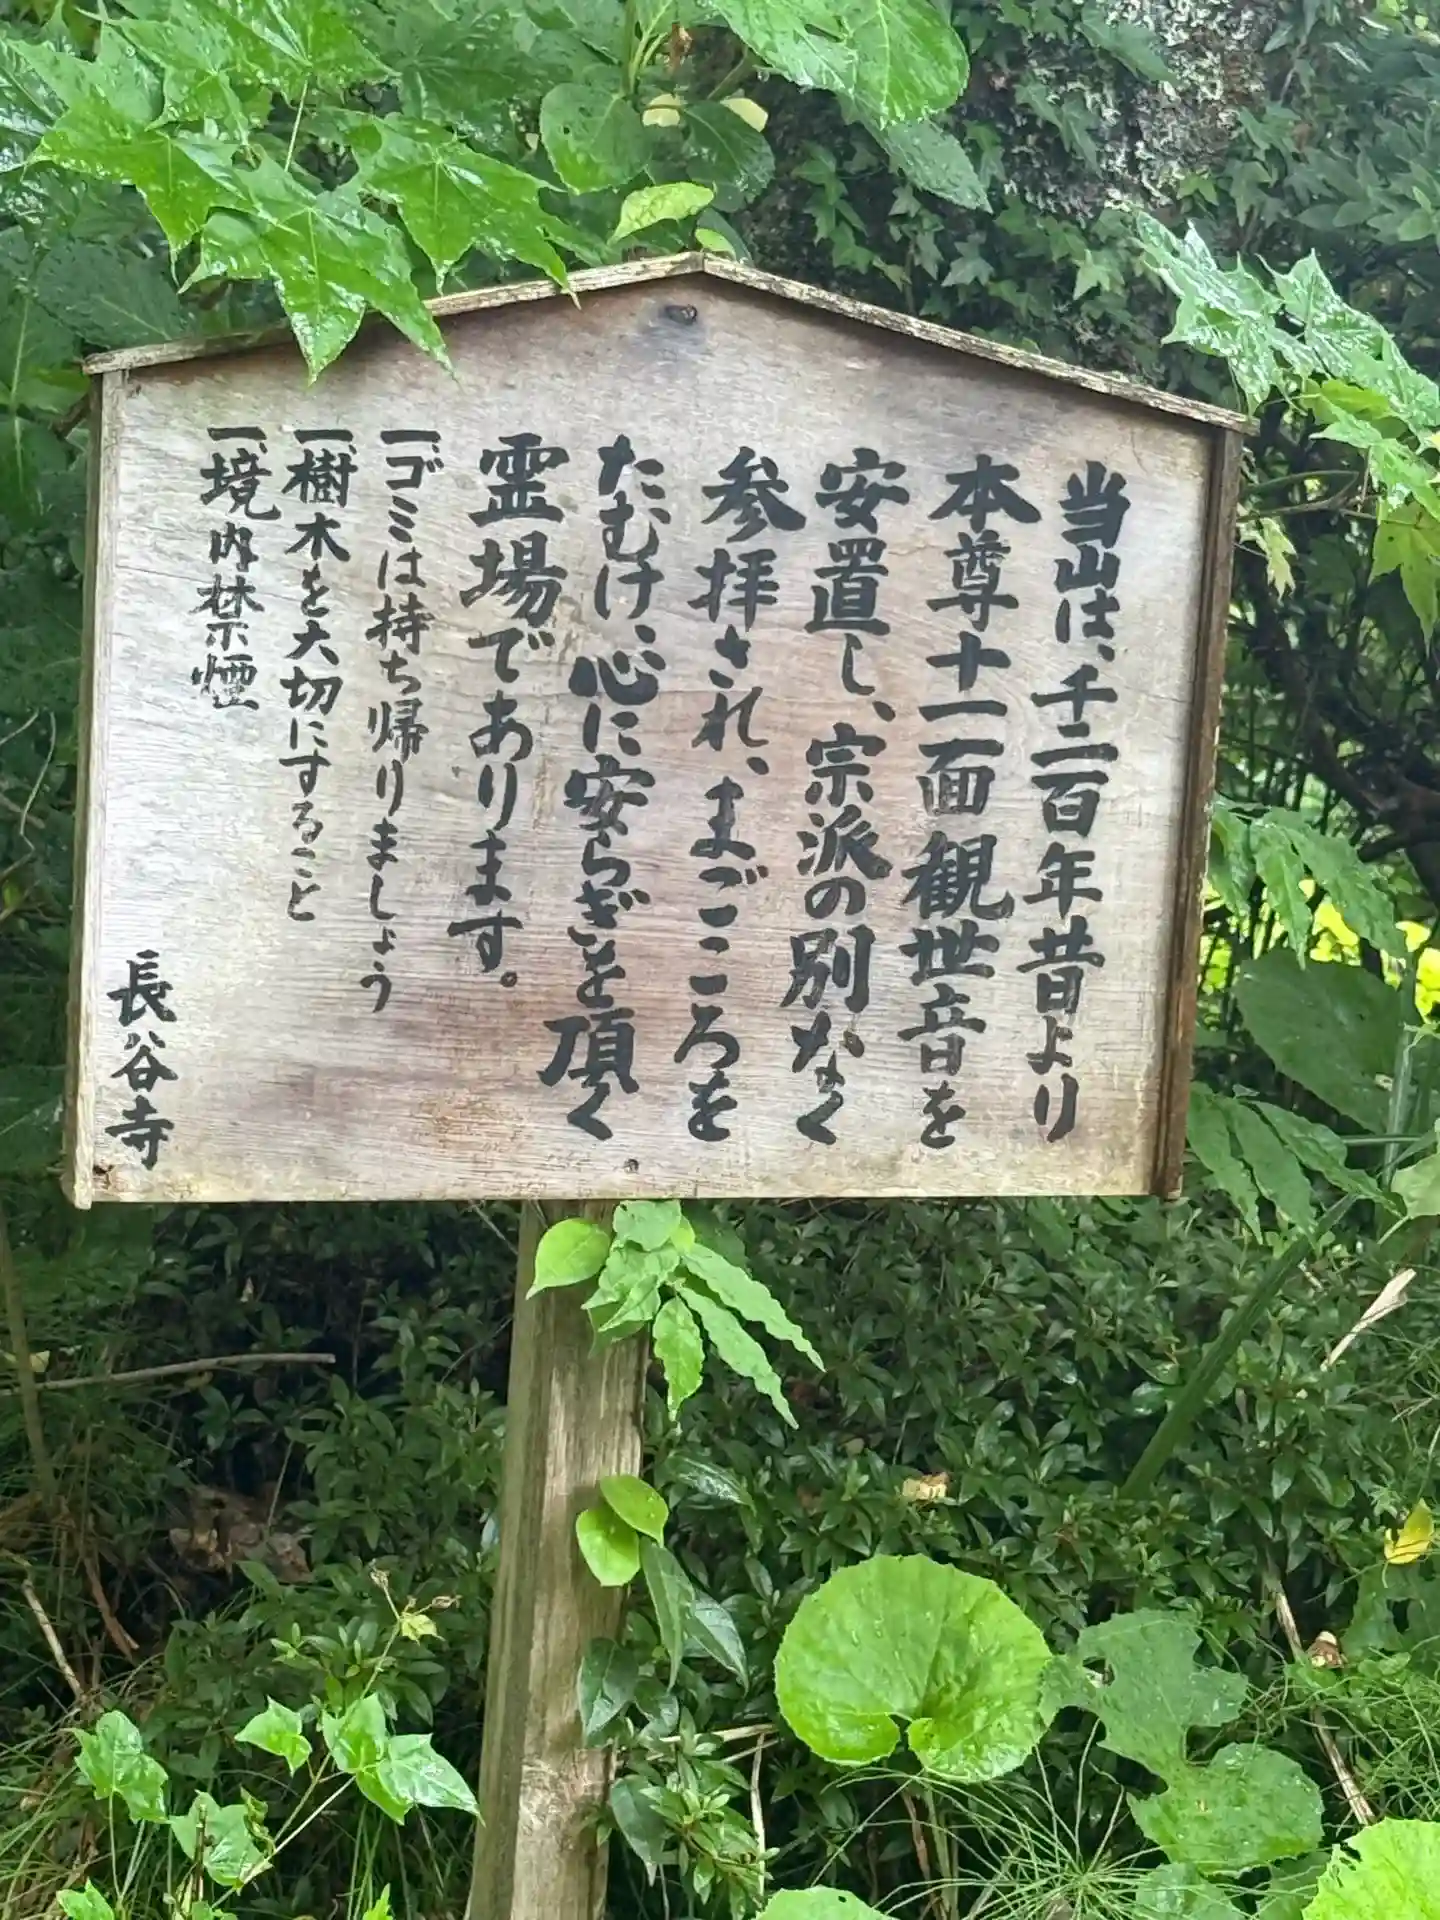 当山は、千二百年昔より
本尊十一面観世音を
安置し、宗派の別なく
参拝され、まごころを
たむけ、心に安らぎを頂く
霊場であります。
一、ゴミは持ち帰りましょう
一、樹木を大切にすること
一、境内禁煙
長谷寺